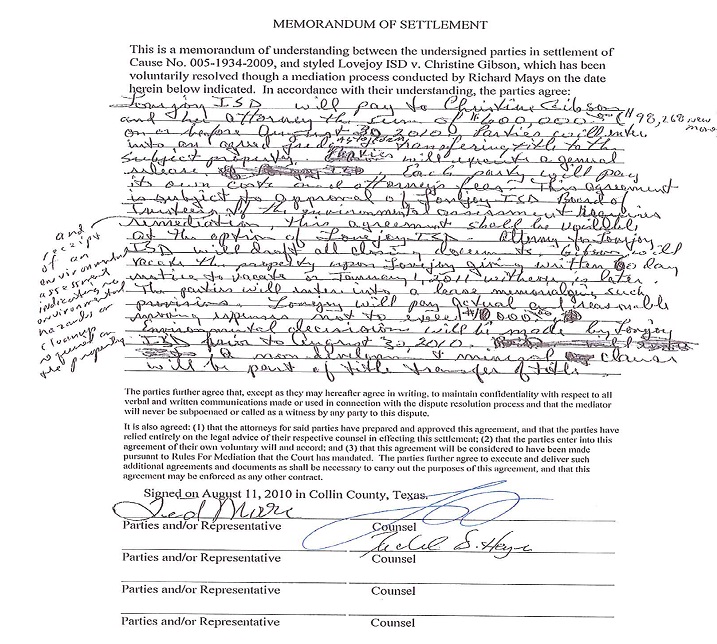 MEMORANDUM OF SETTLEMENT
This is a memorandum of understanding between the undersigned parties in settlement of
Cause No. 005-1934-2009, and styled Lovejoy ISD v. Christine Gibson, which has been
voluntarily resolved though a mediation process conducted by Richard Mays on the date
herein below indicated. In accordance with their understanding, the parties agree:
Lovejoy ISD will pay to Christine Gibson
and her attorney the sum of $600,000
on or before August 30 2010. Parties will enter
into an agreed transferring title to the
subject property. Parties will execute a general
release. Each party will pay
its own costs and attorney's fees. This agreement
is subject to approval of Lovejoy ISD Board of
Trustees. If the environmental assessment requires
remediation, this agreement shall be voidable
at the option of Lovejoy ISD. Attorney for Lovejoy
ISD will draft all closing documents. Gibson will
vacate the property upon Lovejoy giving written day
notice to vacate or January 1, 2011 whichever is later.
The parties will enter into a lease memorializing such
provisions. Lovejoy will pay actual and reasonable
moving expenses not to exceed $10,000.
Environmental decision will be made by Lovejoy
ISD prior to August 30 2010.
A non develop mineral clause
will be part of title transfer of title.
and
receipt
of an
environmental
assessment
indicating no
environmental
hazards or
cleanup
required on
the property
The parties further agree that, except as they may hereafter agree in writing, to maintain confidentiality with respect to all
verbal and written communications made or used in connection with the dispute resolution process and that the mediator
will never be subpoenaed or called as a witness by any party to this dispute.
It is also agreed: (1) that the attorneys for said parties have prepared and approved this agreement, and that the parties have
relied entirely on the legal advice of their respective counsel in effecting this settlement; (2) that the parties enter into this
agreement of their own voluntary will and accord; and (3) that this agreement will be considered to have been made
pursuant to Rules For Mediation that the Court has mandated. The parties further agree to execute and deliver such
additional agreements and documents as shall be necessary to carry out the purposes of this agreement, and that this
agreement may be enforced as any other contract.
Signed on August 11, 2010 in Collin County, Texas.
Ted Moore
Parties and/or Representative Counsel
Parties and/or Representative Counsel
Parties and/or Representative Counsel
Parties and/or Representative Counsel
Parties and/or Representative Counsel